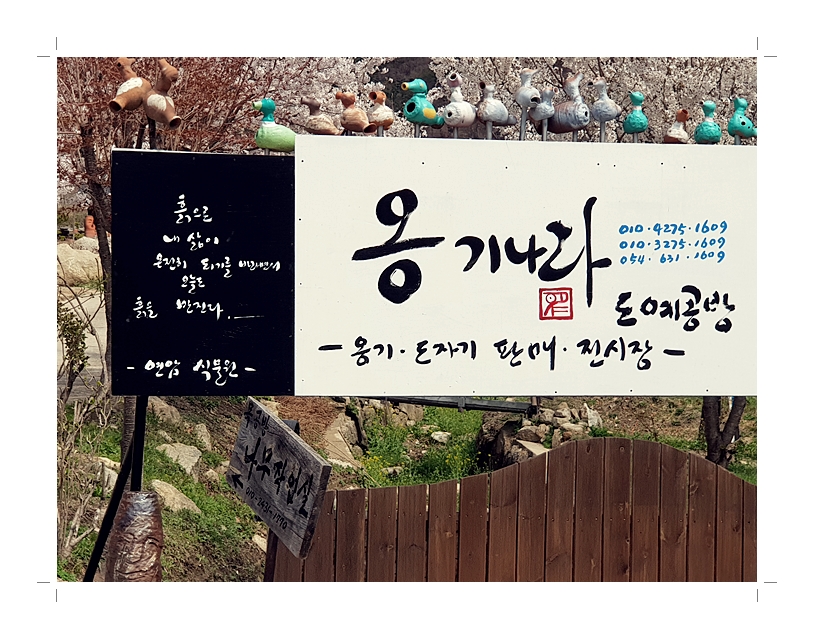 흙으로
내 삶이
온전히 되기를 바라면서
오늘도
흙을 만진다.
- 연암 식물원 -
옹기나라
010·4275·1609
010·3275·1609
054·631·1609
도예공방
- 옹기·도자기 판매·전시장 -
나무작업실